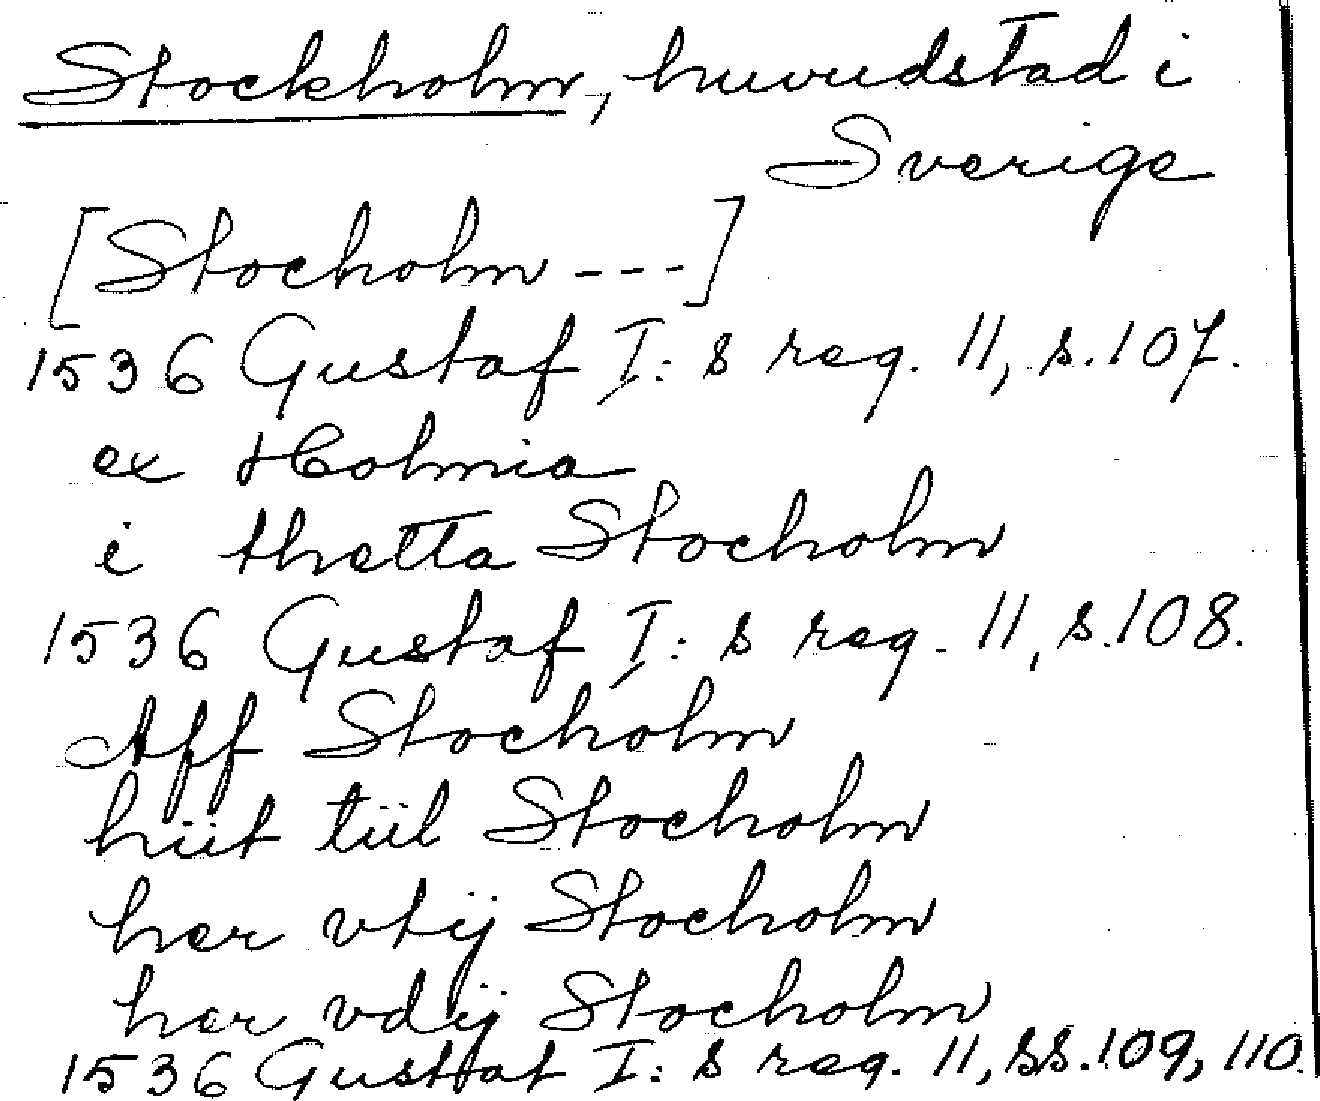 Stockholm, huvudstad i
Sverige
[Stocholm ---]
1536 Gustaf I: s reg. 11, s. 107.
ex Holmia
i thetta Stocholm
1536 Gustaf I: s reg. 11, s. 108.
Aff Stocholm
hiit tiil Stocholm
her vtij Stocholm
her vdij Stocholm
1536 Gustaf I: s reg. 11, ss. 109, 110.